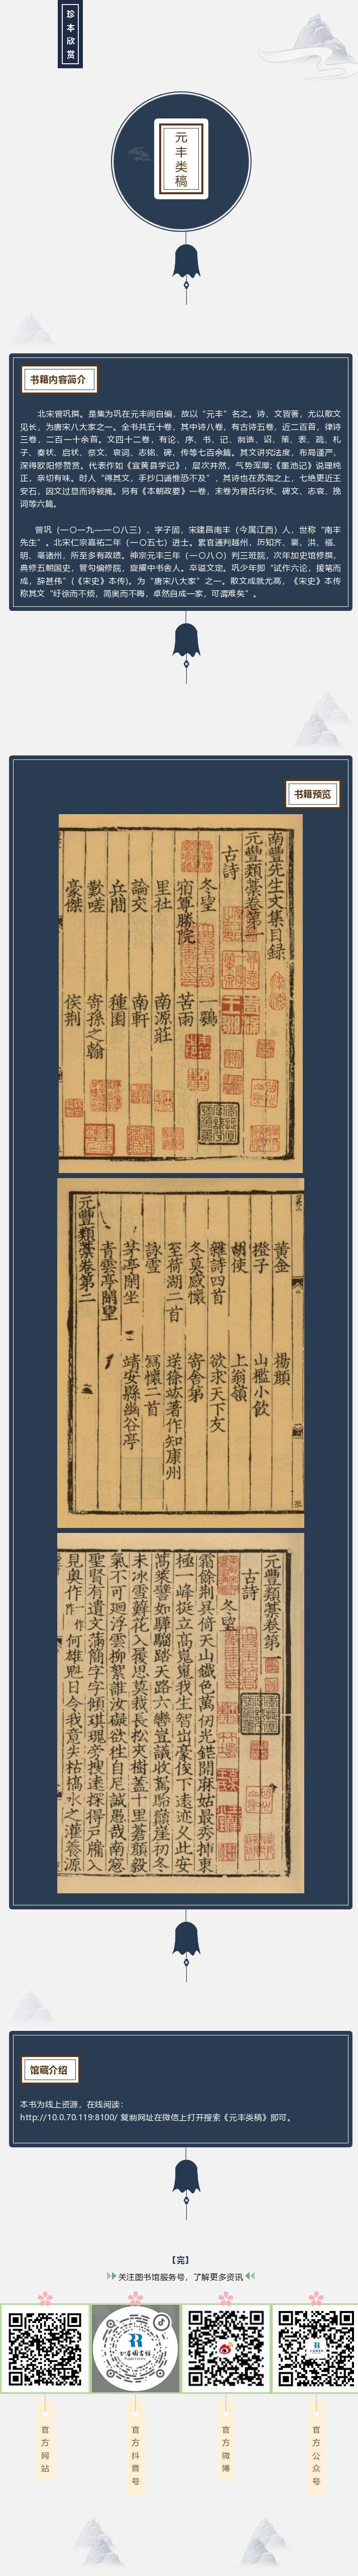 珍本欣赏
元丰类稿
书籍内容简介
北宋曾巩撰。是集为巩在元丰间自编，故以“元丰”名之。诗、文皆著，尤以散文
见长，为唐宋八大家之一。全书共五十卷，其中诗八卷，有古诗五卷，近二百首，律诗
三卷，二百一十余首。文四十二卷，有论、序、书、记、制诰、诏、策、表、疏、札
子、奏状、启状、祭文、哀词、志铭、碑、传等七百余篇。其文讲究法度，布局谨严，
深得欧阳修赞赏。代表作如《宜黄县学记》，层次井然，气势浑厚;《墨池记》说理纯
正，亲切有味。时人“得其文，手抄口诵惟恐不及”，其诗也在苏洵之上，七绝更近王
安石，因文过显而诗被掩。另有《本朝政要》一卷，末卷为曾氏行状、碑文、志哀、挽
词等六篇。
曾巩（一〇一九—一〇八三），字子固，宋建昌南丰（今属江西）人，世称“南丰
先生”。北宋仁宗嘉祐二年（一〇五七）进士。累官通判越州，历知齐、襄、洪、福、
明、亳诸州，所至多有政绩。神宗元丰三年（一〇八〇）判三班院，次年加史馆修撰，
典修五朝国史，管勾编修院，旋擢中书舍人。卒谥文定。巩少年即“试作六论，援笔而
成，辞甚伟”(《宋史》本传)。为“唐宋八大家”之一。散文成就尤高，《宋史》本传
称其文“纡徐而不烦，简奥而不晦，卓然自成一家，可谓难矣”。
书籍预览
南豐先生文集目録
元豐類藁卷第一
古詩
冬望
一鶚
宿尊勝院
苦雨
里社
南源莊
論交
南軒
兵間
種園
歎嗟
寄孫之翰
豪傑
侯荆
黃金
楊顔
橙子
山檻小飲
胡使
上翁嶺
雜詩四首
欲求天下友
冬莫感懷
寄舍弟
至荷湖二首
送徐竑著作知康州
詠雪
寫懷二首
茅亭閑坐
靖安縣幽谷亭
青雲亭閑望
元豐類藁卷第二
元豐類藁卷第一
古詩
冬望
霜餘荆吳倚天山鐵色萬仞光鋩開麻姑最秀揷東
極一峰挺立高嵬嵬我生智出豪俊下遠迹久此安
蒿萊譬如驊騮踏天路六轡豈議收駑駘巔崖初冬
未冰雪蘚花入履思莫裁長松夾樹蓋十里蒼顔毅
氣不可迴浮雲柳絮誰汝礙欲往自尼誠愚哉南窓
聖賢有遺文滿簡字字傾琪瑰旁搜遠探得戸牖入
見奧作何雄魁日令我意失枯槁水之灌養源
馆藏介绍
本书为线上资源，在线阅读:
http://10.0.70.119:8100/ 复制网址在微信上打开搜索《元丰类稿》即可。
【完】
关注图书馆服务号，了解更多资讯
官方网站
官方抖音号
官方微博
官方公众号